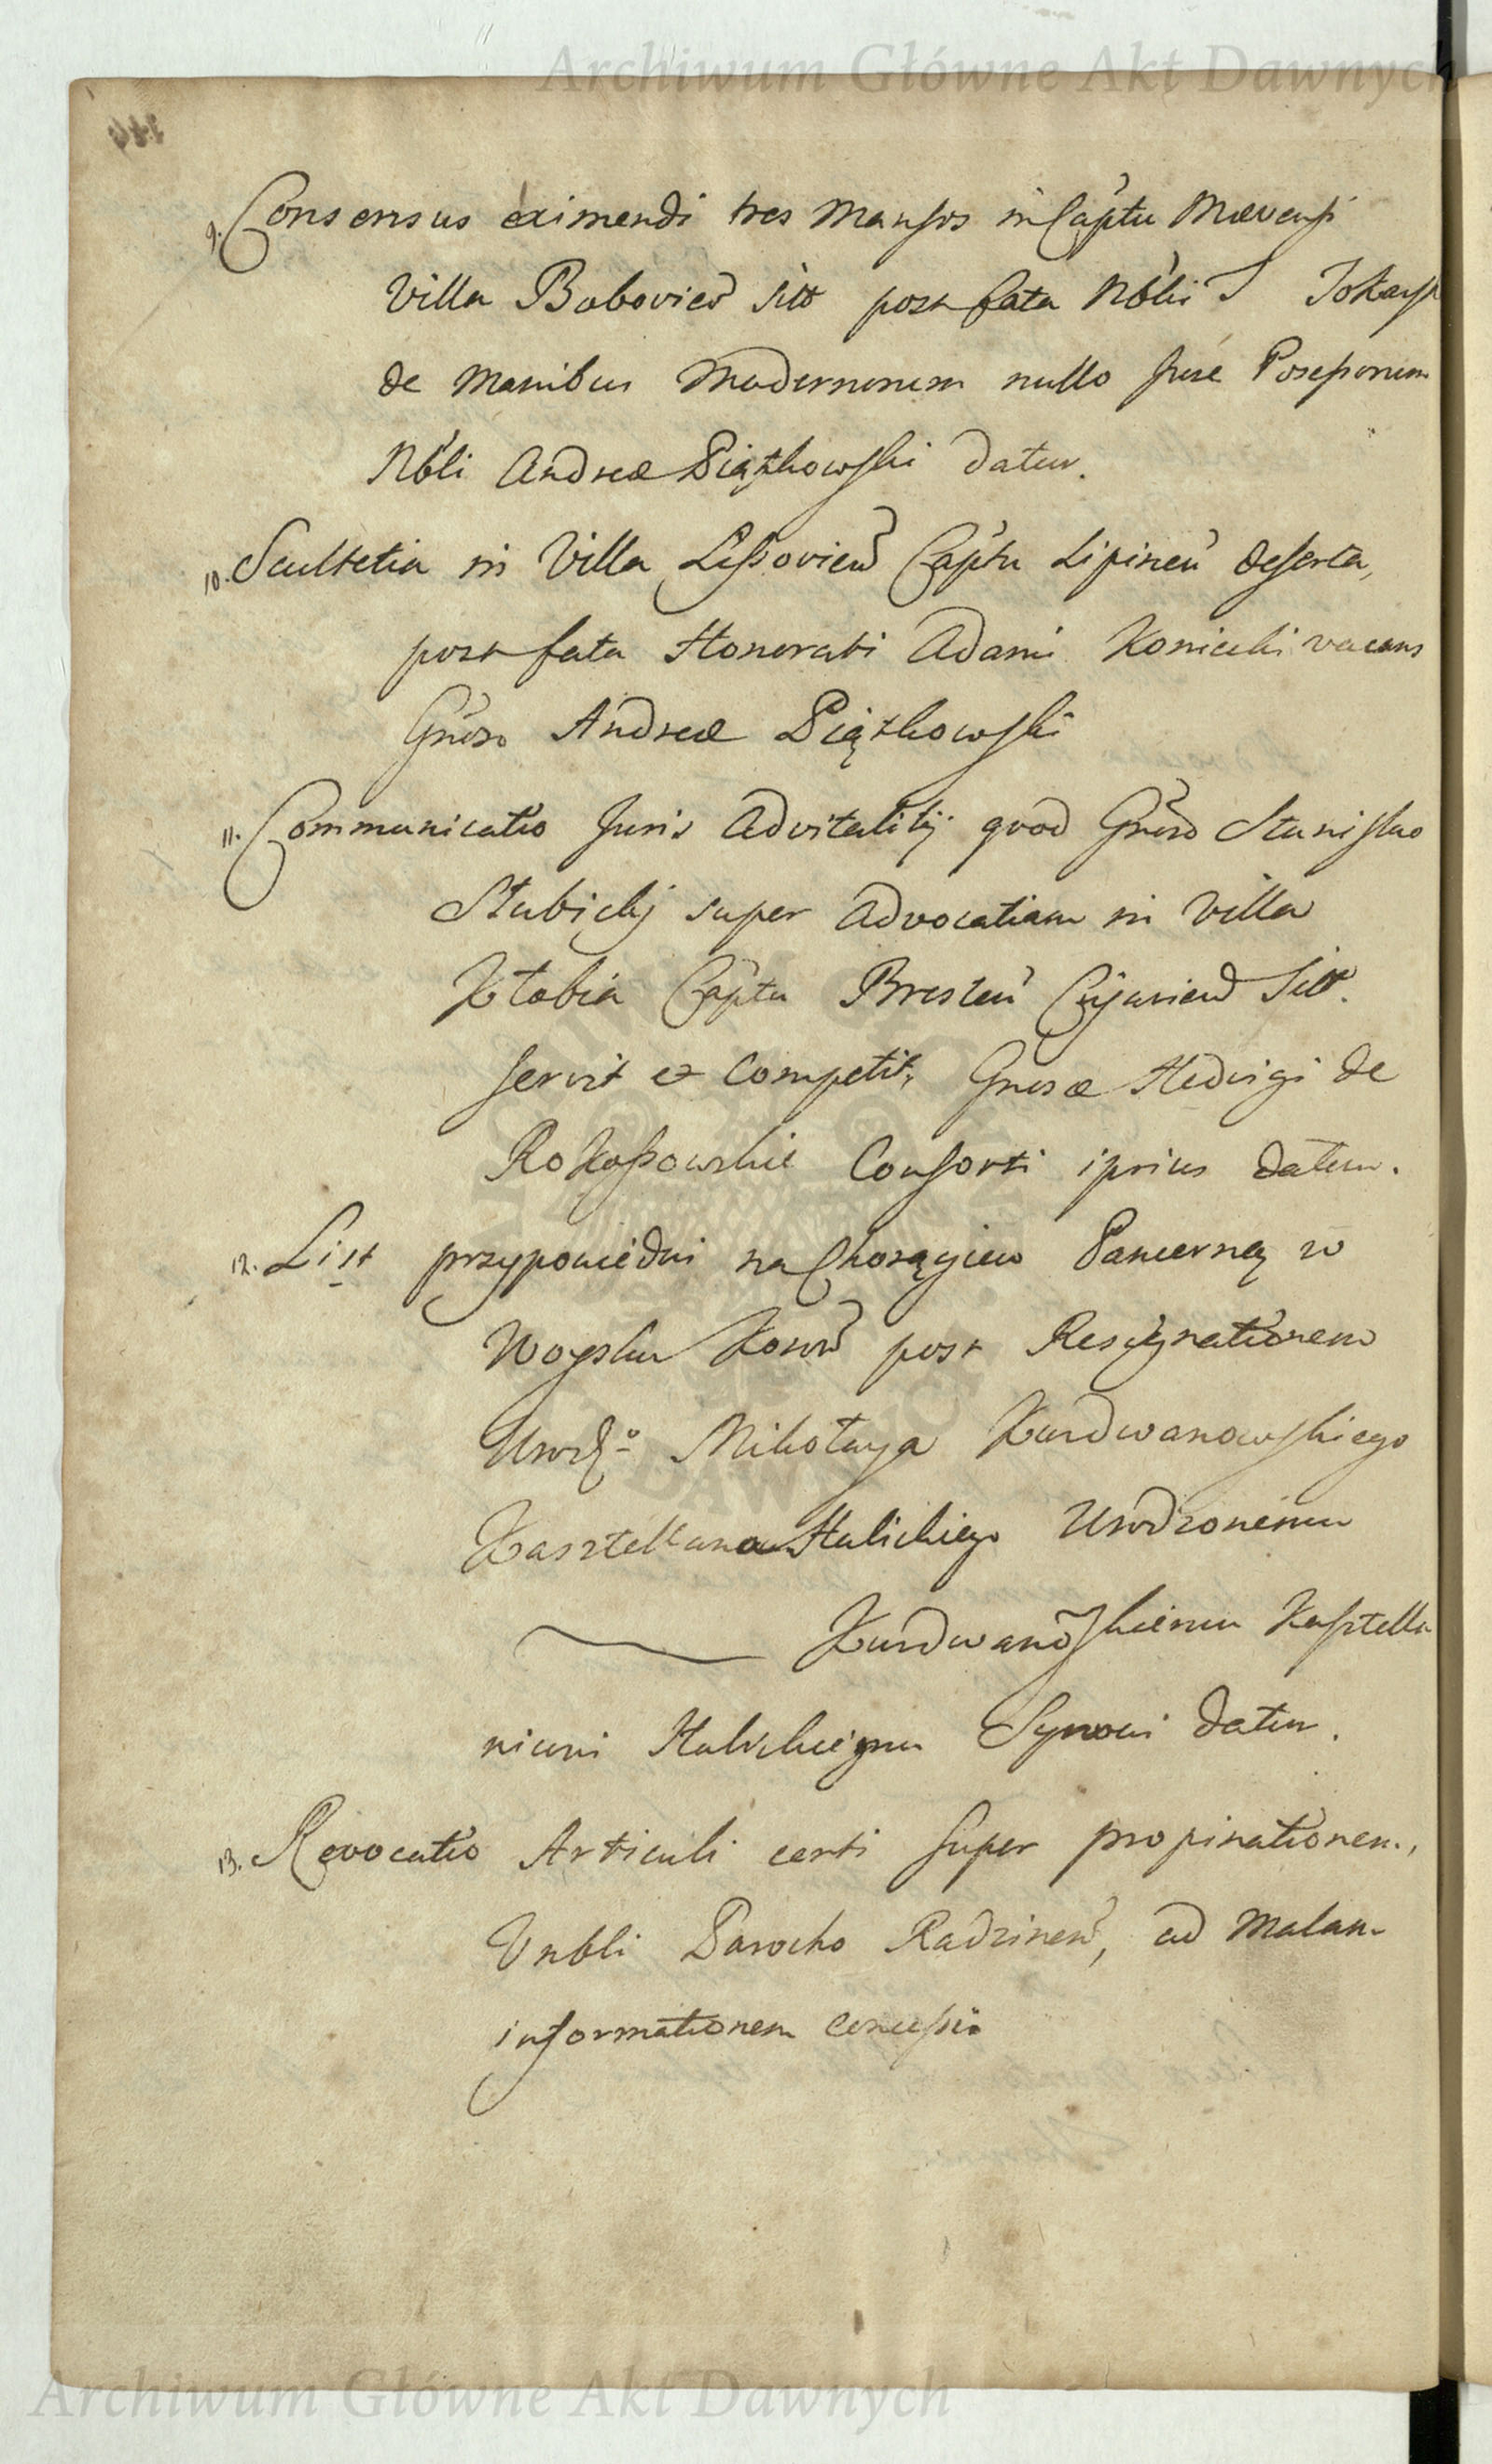 Archiwum Główne Akt Dawnych
9. Consensus eximendi tres Mansos in Captu Mævensi
Villa Bobovien sitt post fata Nobli J Tokarsk
de Manibus Modernorum nullo Jure Possessorum
Nobli Andreæ Piątkowski datur.
10. Scultetia in Villa Lissovien Captu Lipinen deserta,
post fata Honorati Adami Konicki vacans
Gnroso Andreæ Piątkowski
11. Communicatio Juris Advitalitij quod Gnroso Stanislao
Słubicky super Advocatiam in Villa
Kłobia Captu Bresten Cujavien Sitt.
servit et Competit, Gnrosæ Hedvigi de
Rokossowskie Consorti ipsius datur.
12. List przypowiedni na Chorągiew Pancerną w
Woysku Koron post Resignationem
Urodzo Mikołaya Kurdwanowskiego
Kasztellana Halickiego Urodzonemu
Kurdwanoskiemu Kasztella
nicowi Halickiemu Synowi datur.
13. Revocatio Articuli certi super propinationem,
Vnbli Parocho Radzinen, ad malam
informationem concessi.
Archiwum Główne Akt Dawnych